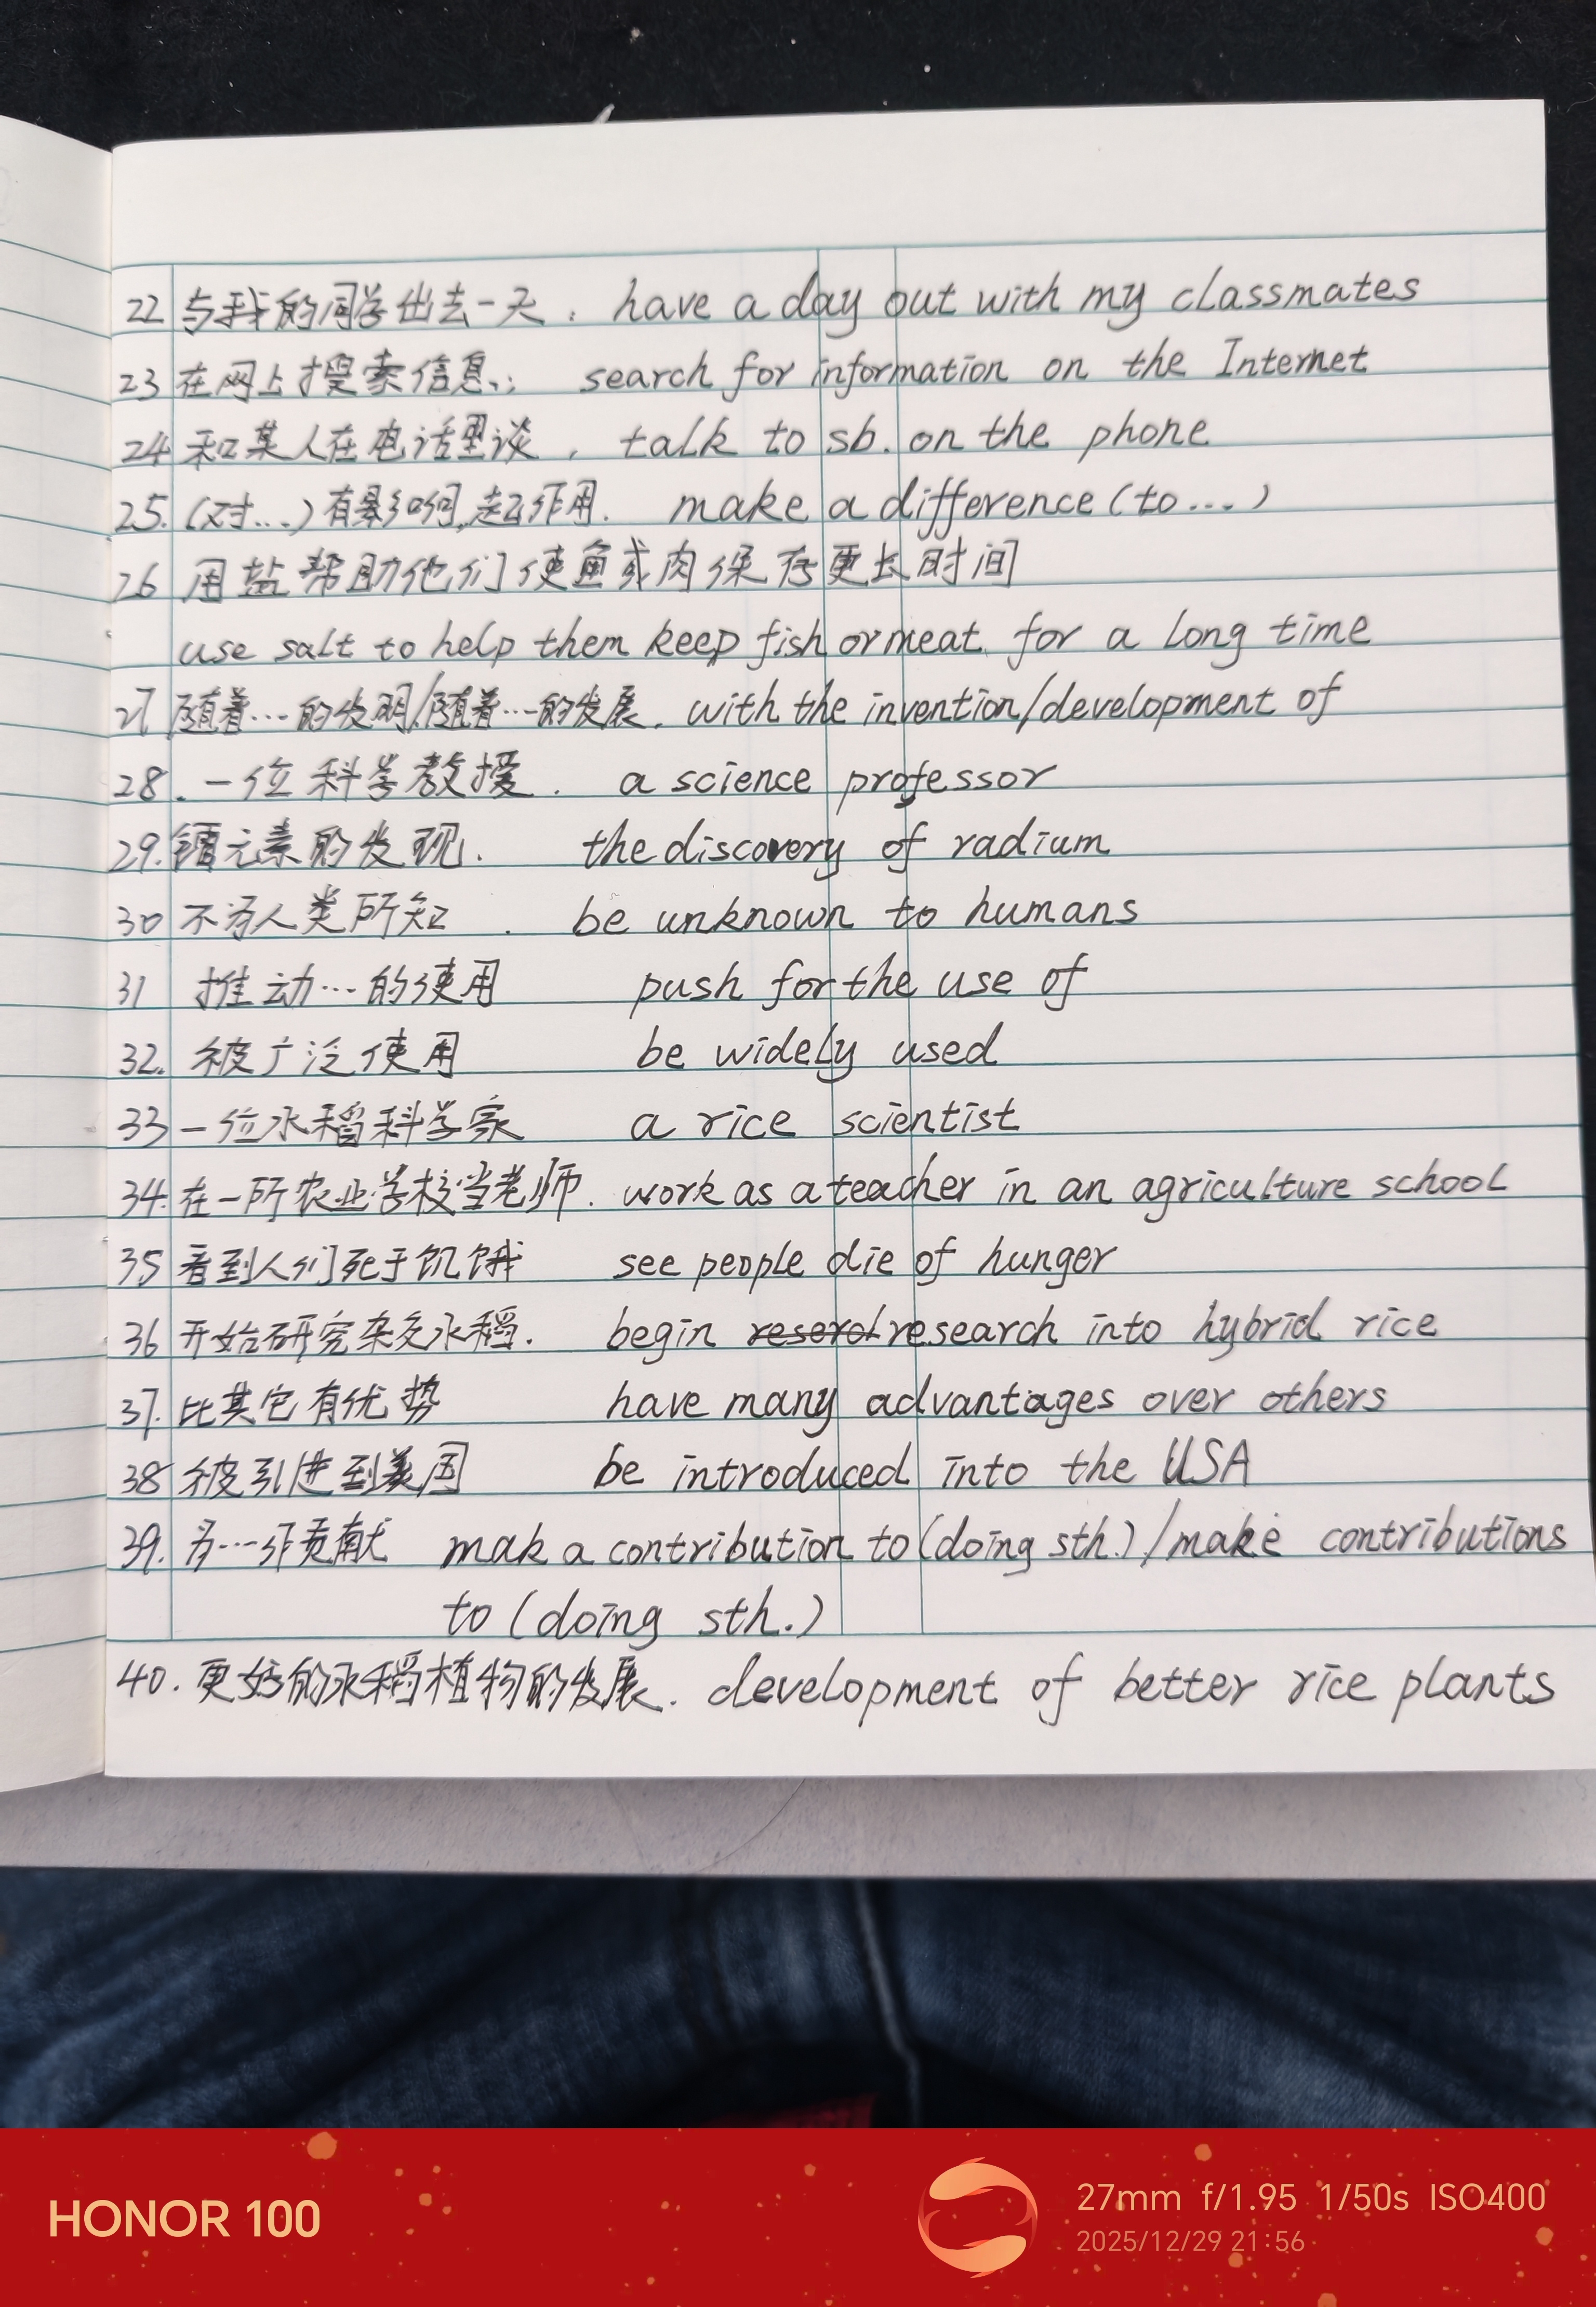 22 与我的同学出去一天. have a day out with my classmates
23 在网上搜索信息.; search for information on the Internet
24 和某人在电话里谈, talk to sb. on the phone
25. (对...) 有影响,起作用. make a difference (to...)
26 用盐帮助他们使鱼或肉保存更长时间
use salt to help them keep fish or meat for a long time
27 随着…的发明/随着…的发展. with the invention/development of
28. 一位科学教授. a science professor
29. 镭元素的发现. the discovery of radium
30 不为人类所知. be unknown to humans
31 推动…的使用 push for the use of
32. 被广泛使用 be widely used
33 一位水稻科学家 a rice scientist
34. 在一所农业学校当老师. work as a teacher in an agriculture school
35 看到人们死于饥饿 see people die of hunger
36 开始研究杂交水稻. begin research into hybrid rice
37. 比其它有优势 have many advantages over others
38 被引进到美国 be introduced into the USA
39. 为…作贡献 mak a contribution to (doing sth.) / make contributions
to (doing sth.)
40. 更好的水稻植物的发展. development of better rice plants
HONOR 100
27mm f/1.95 1/50s ISO400
2025/12/29 21:56